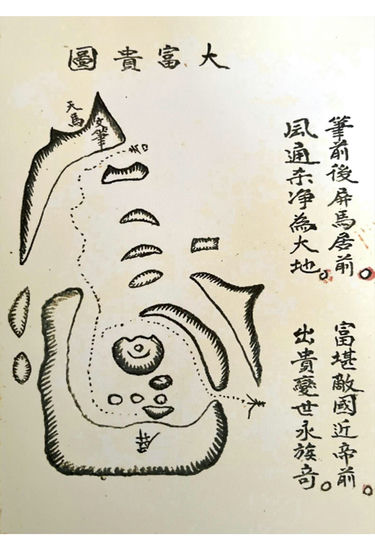 大富貴圖
筆前後屏馬居前。富堪敵國近帝前。
風通杀净為大地。出貴變世永族奇。
天馬
文筆